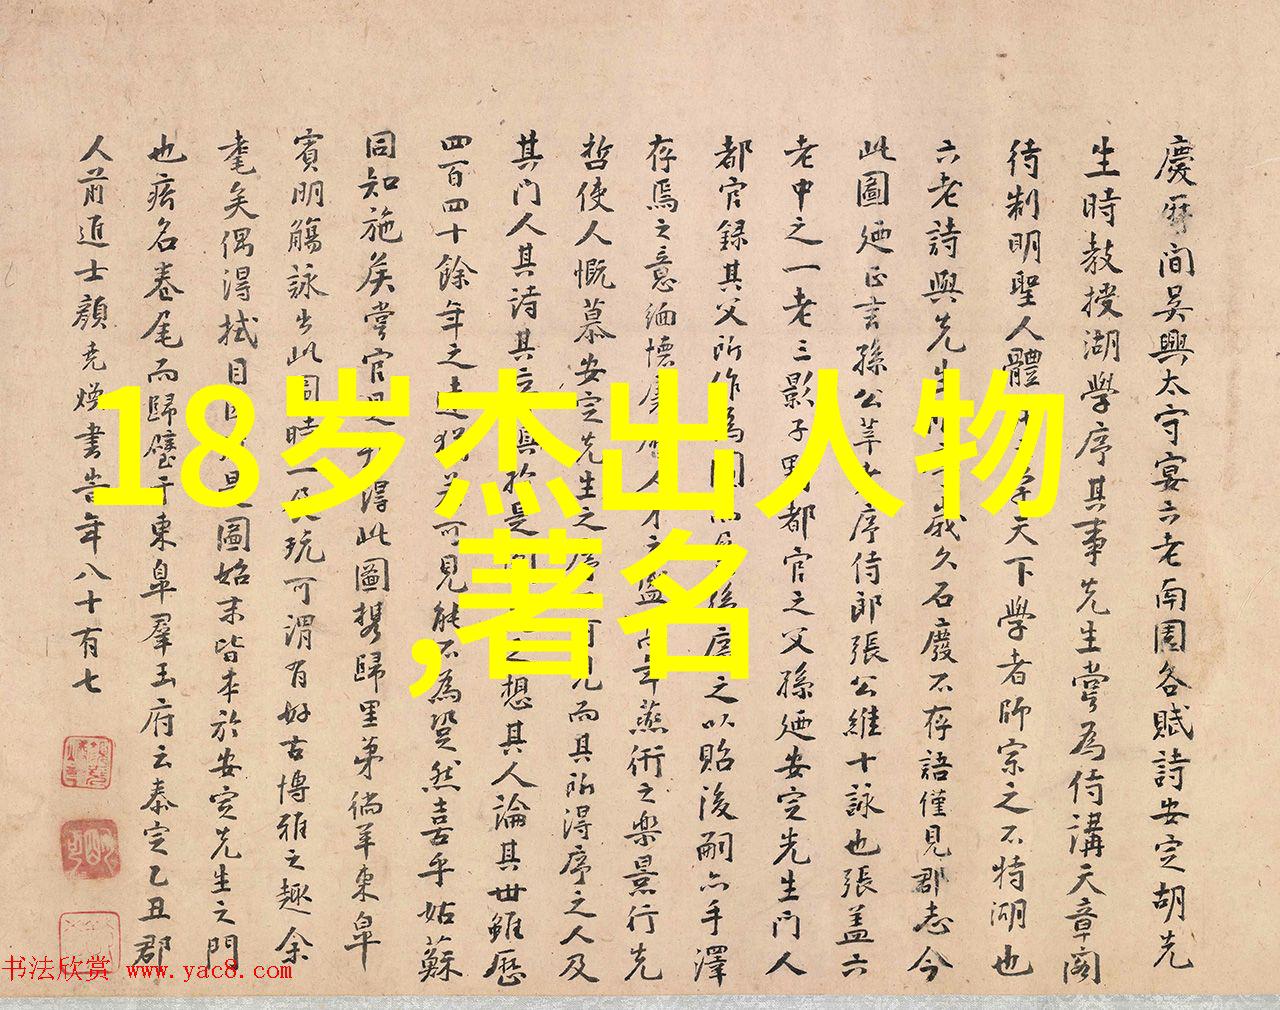 慶曆間吳興太守宴六老南園各賦詩安定胡先
生時教授湖學序其事先生嘗為侍講天章閣
待制明聖人體天下學者師宗之不特湖也
六老詩與先生歲久石廢不存語僅見郡志今
此圖廼正言孫公莘老序侍郎張公維十詠也張蓋六
老中之一老三影子野都官之父孫廼安定先生門人
都官錄其父所作為圖孫序之以貽後嗣六手澤
存焉之意緬懷慶曆人才之盛燕衎之樂景行先
哲使人慨慕安定先生之見而其所得序之人及
其門人其詩其想其人論其世雖歷
四百四十餘年之可見能不為興然喜乎姑蘇
同知施矦嘗官得此圖携歸里第徜羊東皐
賓明觴詠出此同時一玩可謂有好古博雅之趣余
耄矣偶得拭目圖始末皆本於安定先生之門
也痞名卷尾而歸璧于東皐羣玉府云泰定乙丑郡
人前進士顏堯煥書告年八十有七
18岁杰出人物
,著名
书法欣赏 www.yac8.com